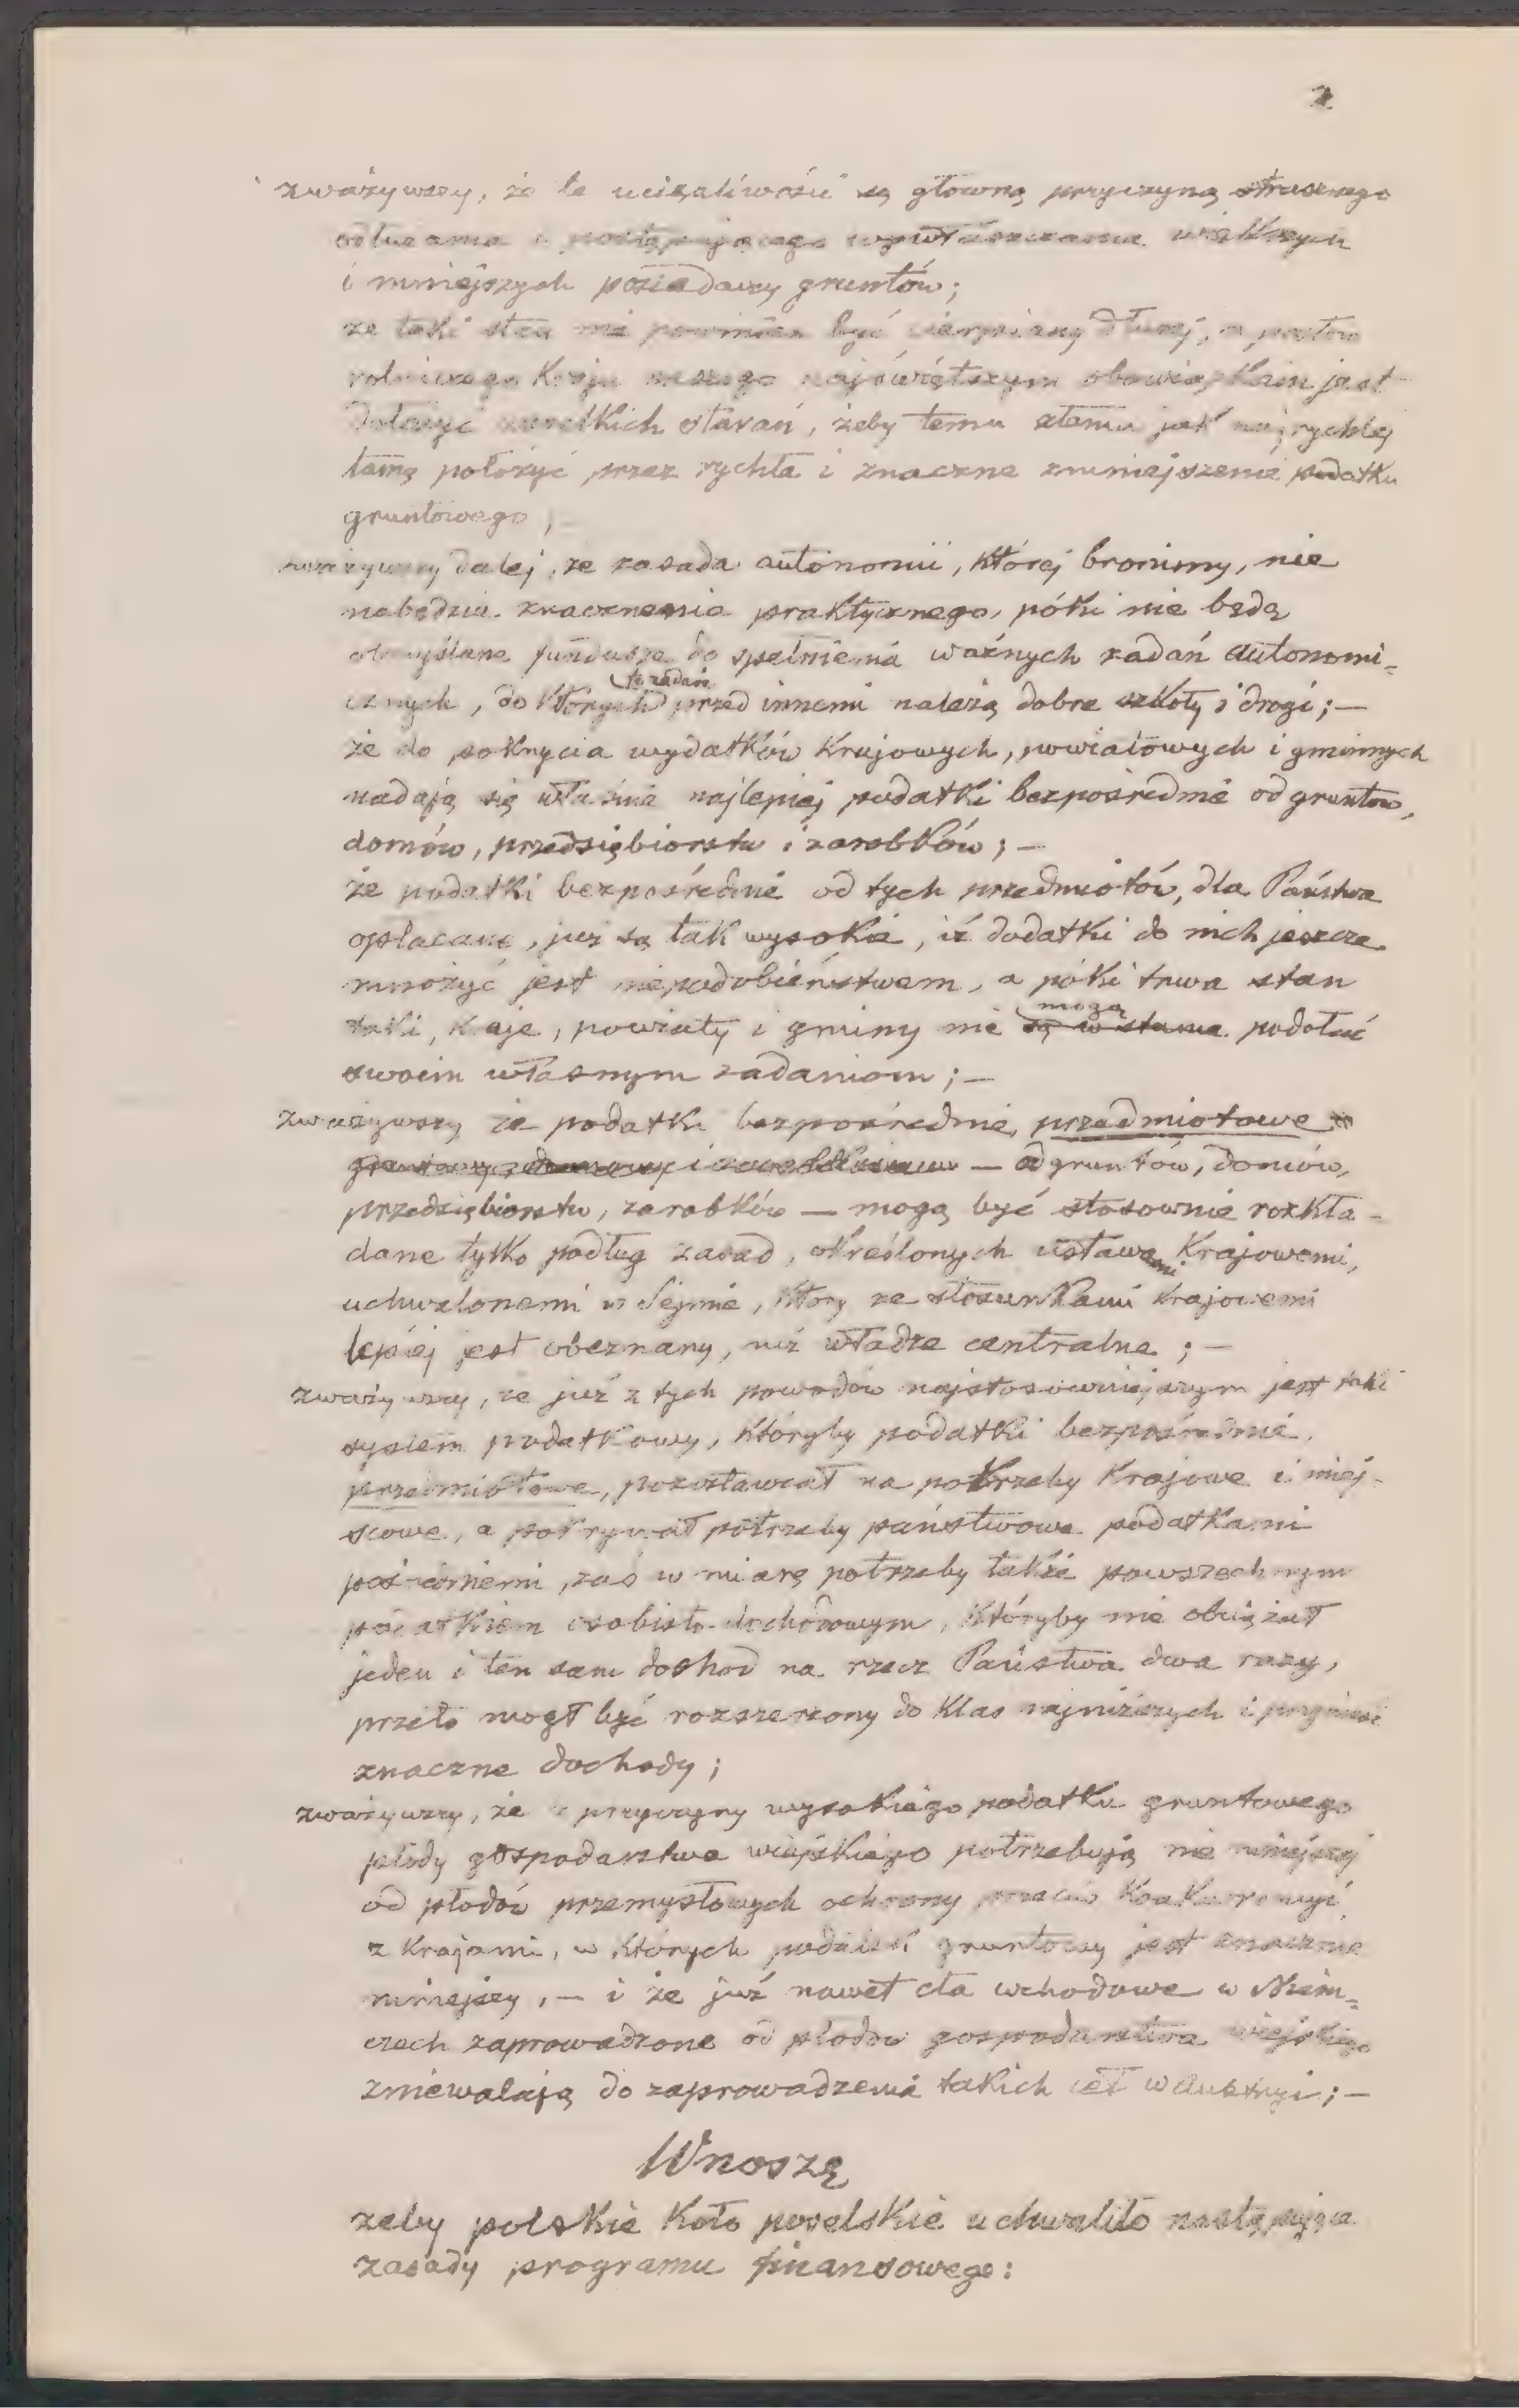 2
zważywszy, że te uciążliwości są główną przyczyną strasznego
odłużania i postępującego wywłaszczania większych
i mniejszych posiadaczy gruntów;
że taki stan nie powinien być cierpiany dłużej, a posłów
rolniczego Kraju naszego najświętszym obowiązkiem jest
dołożyć wszelkich starań, żeby temu złemu jak najrychlej
tamę położyć przez rychłe i znaczne zmniejszenie podatku
gruntowego,
zważywszy dalej, że zasada autonomii, której bronimy, nie
nabędzie znaczenia praktycznego, póki nie będą
obmyślane fundusze do spełnienia ważnych zadań autonomi-
cznych, do których to zadań przed innemi należą dobre szkoły i drogi; —
że do pokrycia wydatków Krajowych, powiatowych i gminnych
nadają się właśnie najlepiej podatki bezpośrednie od gruntów,
domów, przedsiębiorstw i zarobków; —
że podatki bezpośrednie od tych przedmiotów, dla Państwa
opłacane, już są tak wysokie, iż dodatki do nich jeszcze
mnożyć jest niepodobieństwem, a póki trwa stan
taki, Kraje, powiaty i gminy nie są w stanie mogą podołać
swoim własnym zadaniom; —
zważywszy że podatki bezpośrednie, przedmiotowe
— od gruntów, domów,
przedsiębiorstw, zarobków — mogą być stosownie rozkła-
dane tylko podług zasad, określonych ustawami Krajowemi,
uchwalonemi w Sejmie, który ze stosunkami Krajowemi
lepiej jest obeznany, niż władze centralne; —
zważywszy, że już z tych powodów najstosowniejszym jest taki
system podatkowy, któryby podatki bezpośrednie,
przedmiotowe, pozostawiał na potrzeby Krajowe i miej-
scowe, a pokrywał potrzeby państwowe podatkami
pośredniemi, zaś w miarę potrzeby także powszechnym
podatkiem osobisto-dochodowym, któryby nie obciążał
jeden i ten sam dochód na rzecz Państwa dwa razy,
przeto mógł być rozszerzony do Klas najniższych i przynieść
znaczne dochody;
zważywszy, że z przyczyny wysokiego podatku gruntowego
płody gospodarstwa wiejskiego potrzebują nie mniejszej
od płodów przemysłowych ochrony przeciw Konkurencyi
z Krajami, w których podatek gruntowy jest znacznie
mniejszy, — i że już nawet cła wchodowe w Niem-
czech zaprowadzone od płodów gospodarstwa wiejskiego
zniewalają do zaprowadzenia takich ceł w Austryi; —
Wnoszę
żeby polskie Koło poselskie uchwaliło następujące
zasady programu finansowego: